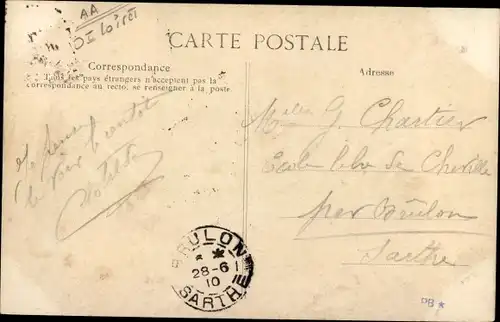 AA
CARTE POSTALE
Correspondance
Tous les pays étrangers n'acceptent pas la
correspondance au recto, se renseigner à la poste
Adresse
Je pense
te voir bientôt
Clotilde
Melle G. Chartier
Ecole libre de Chevillé
par Brûlon
Sarthe
BRULON
28-6
10
SARTHE
PB *